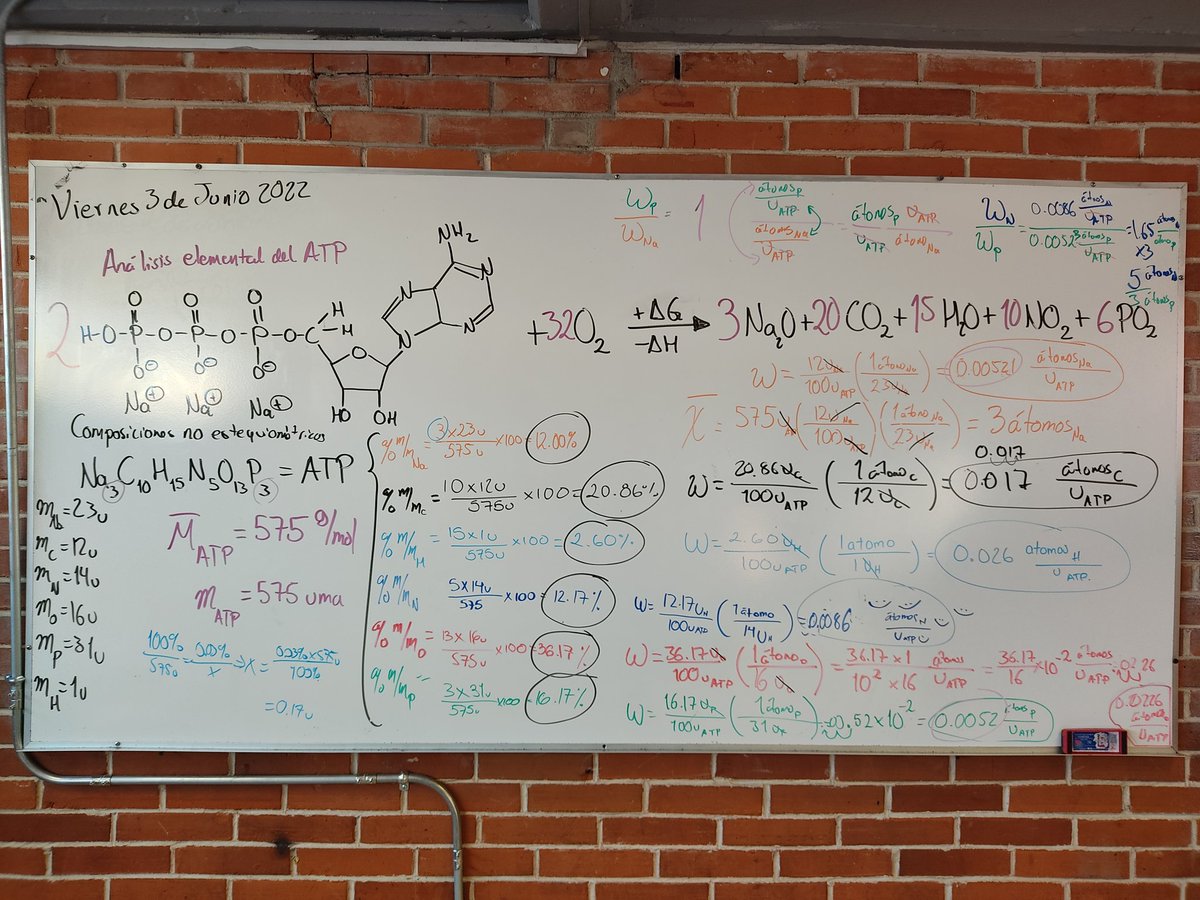 Viernes 3 de Junio 2022
Análisis elemental del ATP
2
NH₂
N N N N
O O O
H-O-P-O-P-O-P-O-C-H
H
O
O⁻ O⁻ O⁻
HO OH
Na⁺ Na⁺ Na⁺
+32O₂ +ΔG -ΔH → 3Na₂O+20CO₂+15H₂O+10NO₂+6PO₂
Composiciones no estequiométricas
Na₃C₁₀H₁₅N₅O₁₃P₃ = ATP
m_Na=23u
m_C=12u
m_N=14u
m_O=16u
m_P=31u
m_H=1u
M̄_ATP = 575 g/mol
m_ATP = 575 uma
100%/575u = 0.03%/x ⇒ x = 0.03%×575u/100%
=0.17u
% m/m_Na = 3×23u/575u ×100 = 12.00%
% m/m_C = 10×12u/575u ×100 = 20.86%
% m/m_H = 15×1u/575u ×100 = 2.60%
% m/m_N 5×14u/575 ×100 = 12.17%
% m/m_O = 13×16u/575u ×100 = 36.17%
% m/m_P = 3×31u/575u ×100 = 16.17%
ω_P/ω_Na = 1 (átomos_P/u_ATP)/(átomos_Na/u_ATP) = átomos_P/u_ATP u_ATP/átomos_Na
ω_N/ω_P = 0.0086 átomos_N/u_ATP / 0.0052 átomos_P/u_ATP = 1.65
×3
5 átomos_N/3 átomos_P
ω = 12u_Na/100u_ATP (1 átomo_Na/23u_Na) = 0.00521 átomos_Na/u_ATP
X̄ = 575u (12u_Na/100u) (1 átomo_Na/23u_Na) = 3 átomos_Na
0.017
ω = 20.86u_C/100u_ATP (1 átomo_C/12u_C) = 0.017 átomos_C/u_ATP
ω = 2.60u_H/100u_ATP (1 atomo/1u_H) = 0.026 atomos_H/u_ATP.
ω = 12.17u_N/100u_ATP (1 átomo/14u_N) = 0.0086 átomos_N/u_ATP
ω = 36.17u/100u_ATP (1 átomo_O/16u) = 36.17×1/10²×16 átomos/u_ATP = 36.17/16 ×10⁻² átomos/u_ATP
0.0226 átomos_O/u_ATP
ω = 16.17u_P/100u_ATP (1 átomo_P/31u_P) = 0.52×10⁻² = 0.0052 átomos_P/u_ATP